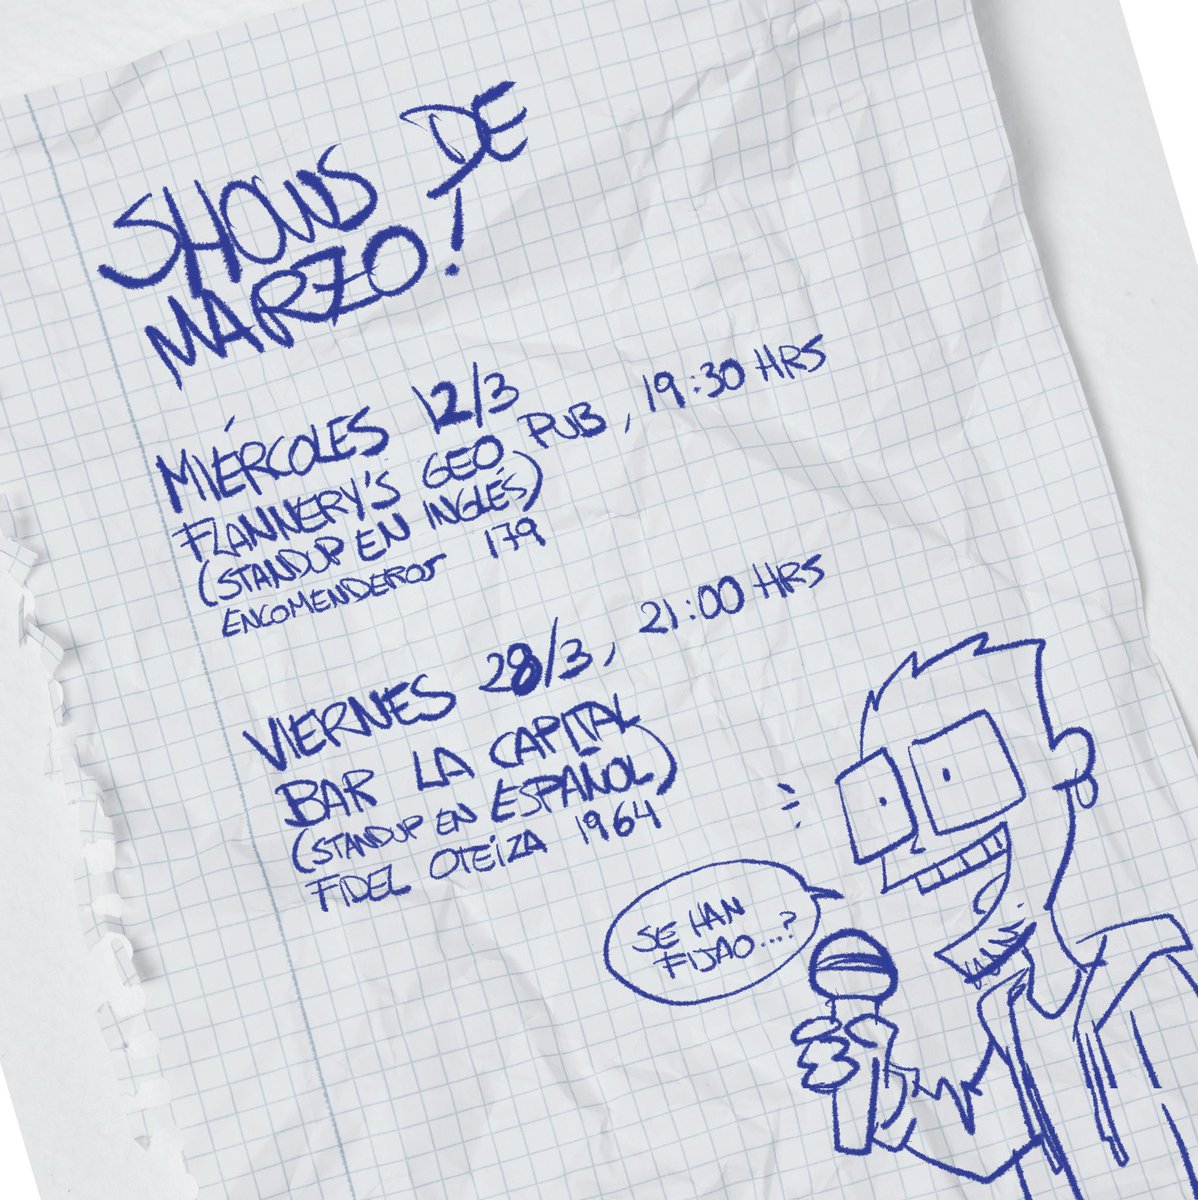 SHOWS DE
MARZO!
MIÉRCOLES 12/3
FLANNERY'S GEO PUB, 19:30 HRS
(STANDUP EN INGLÉS)
ENCOMENDEROS 179
VIERNES 28/3, 21:00 HRS
BAR LA CAPITAL
(STANDUP EN ESPAÑOL)
FIDEL OTEÍZA 1964
SE HAN
FIJAO...?